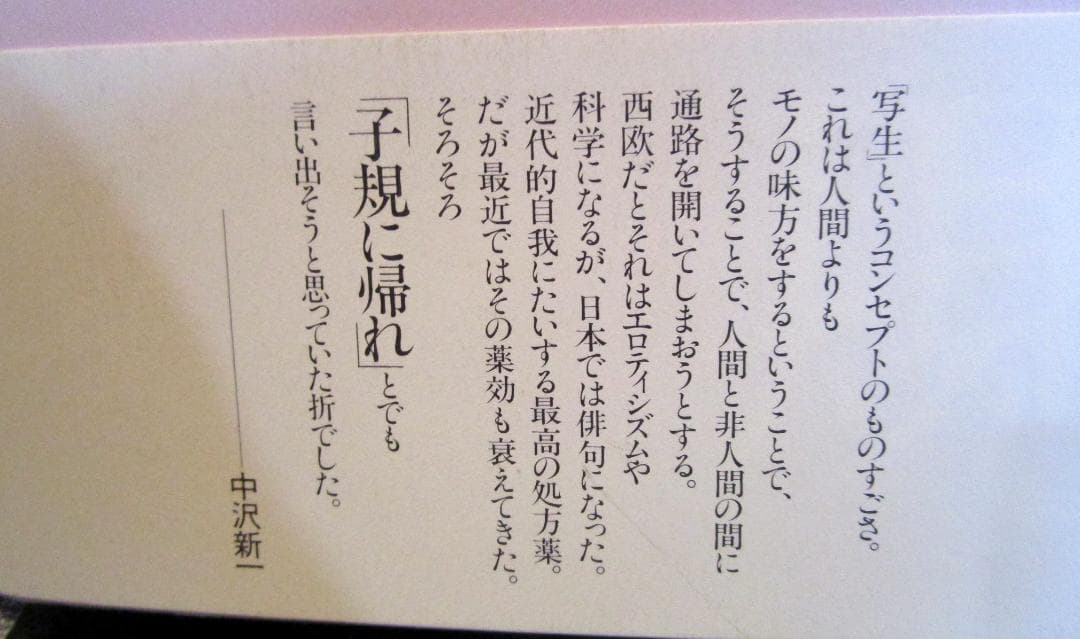 「写生」というコンセプトのものすごさ。
これは人間よりも
モノの味方をするということで、
そうすることで、人間と非人間の間に
通路を開いてしまおうとする。
西欧だとそれはエロティシズムや
科学になるが、日本では俳句になった。
近代的自我にたいする最高の処方薬。
だが最近ではその薬効も衰えてきた。
そろそろ
「子規に帰れ」とでも
言い出そうと思っていた折でした。
中沢新一